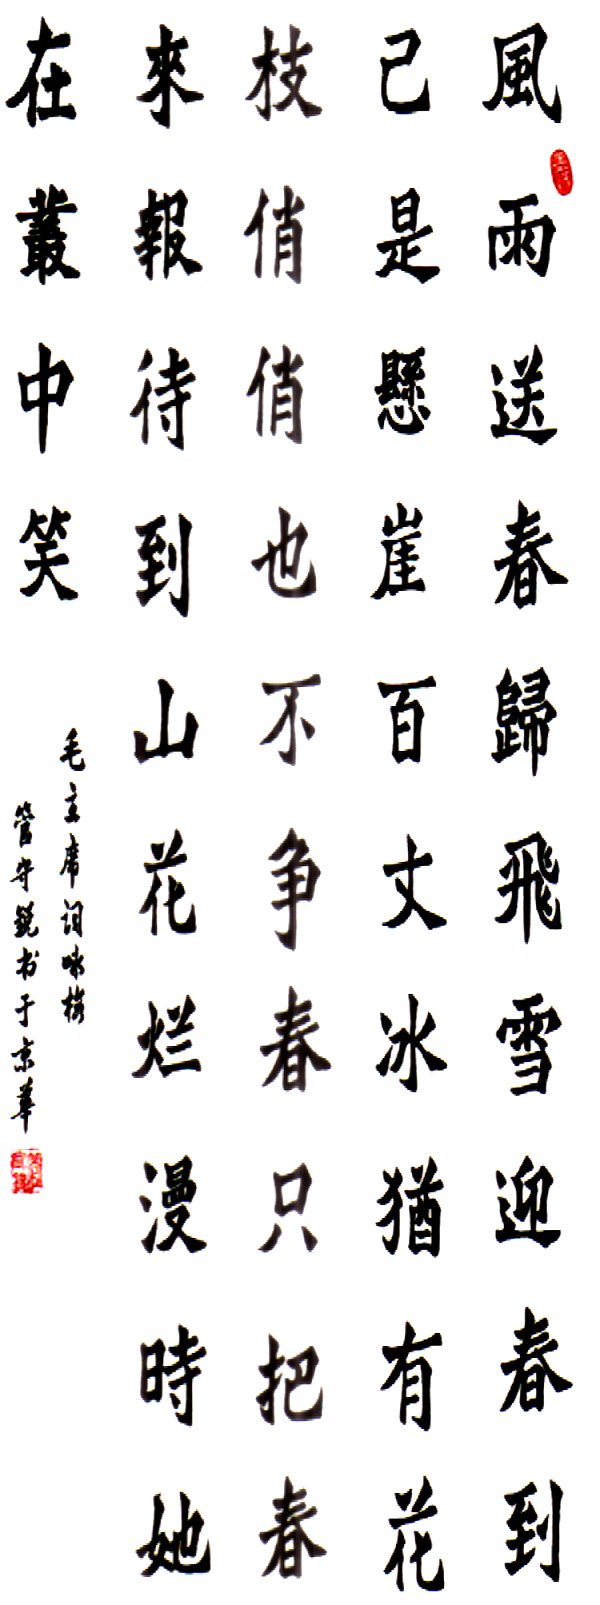 風雨送春歸飛雪迎春到
已是懸崖百丈冰猶有花
枝俏俏也不争春只把春
來報待到山花烂漫時她
在叢中笑
毛主席词咏梅
管守銳书于京華